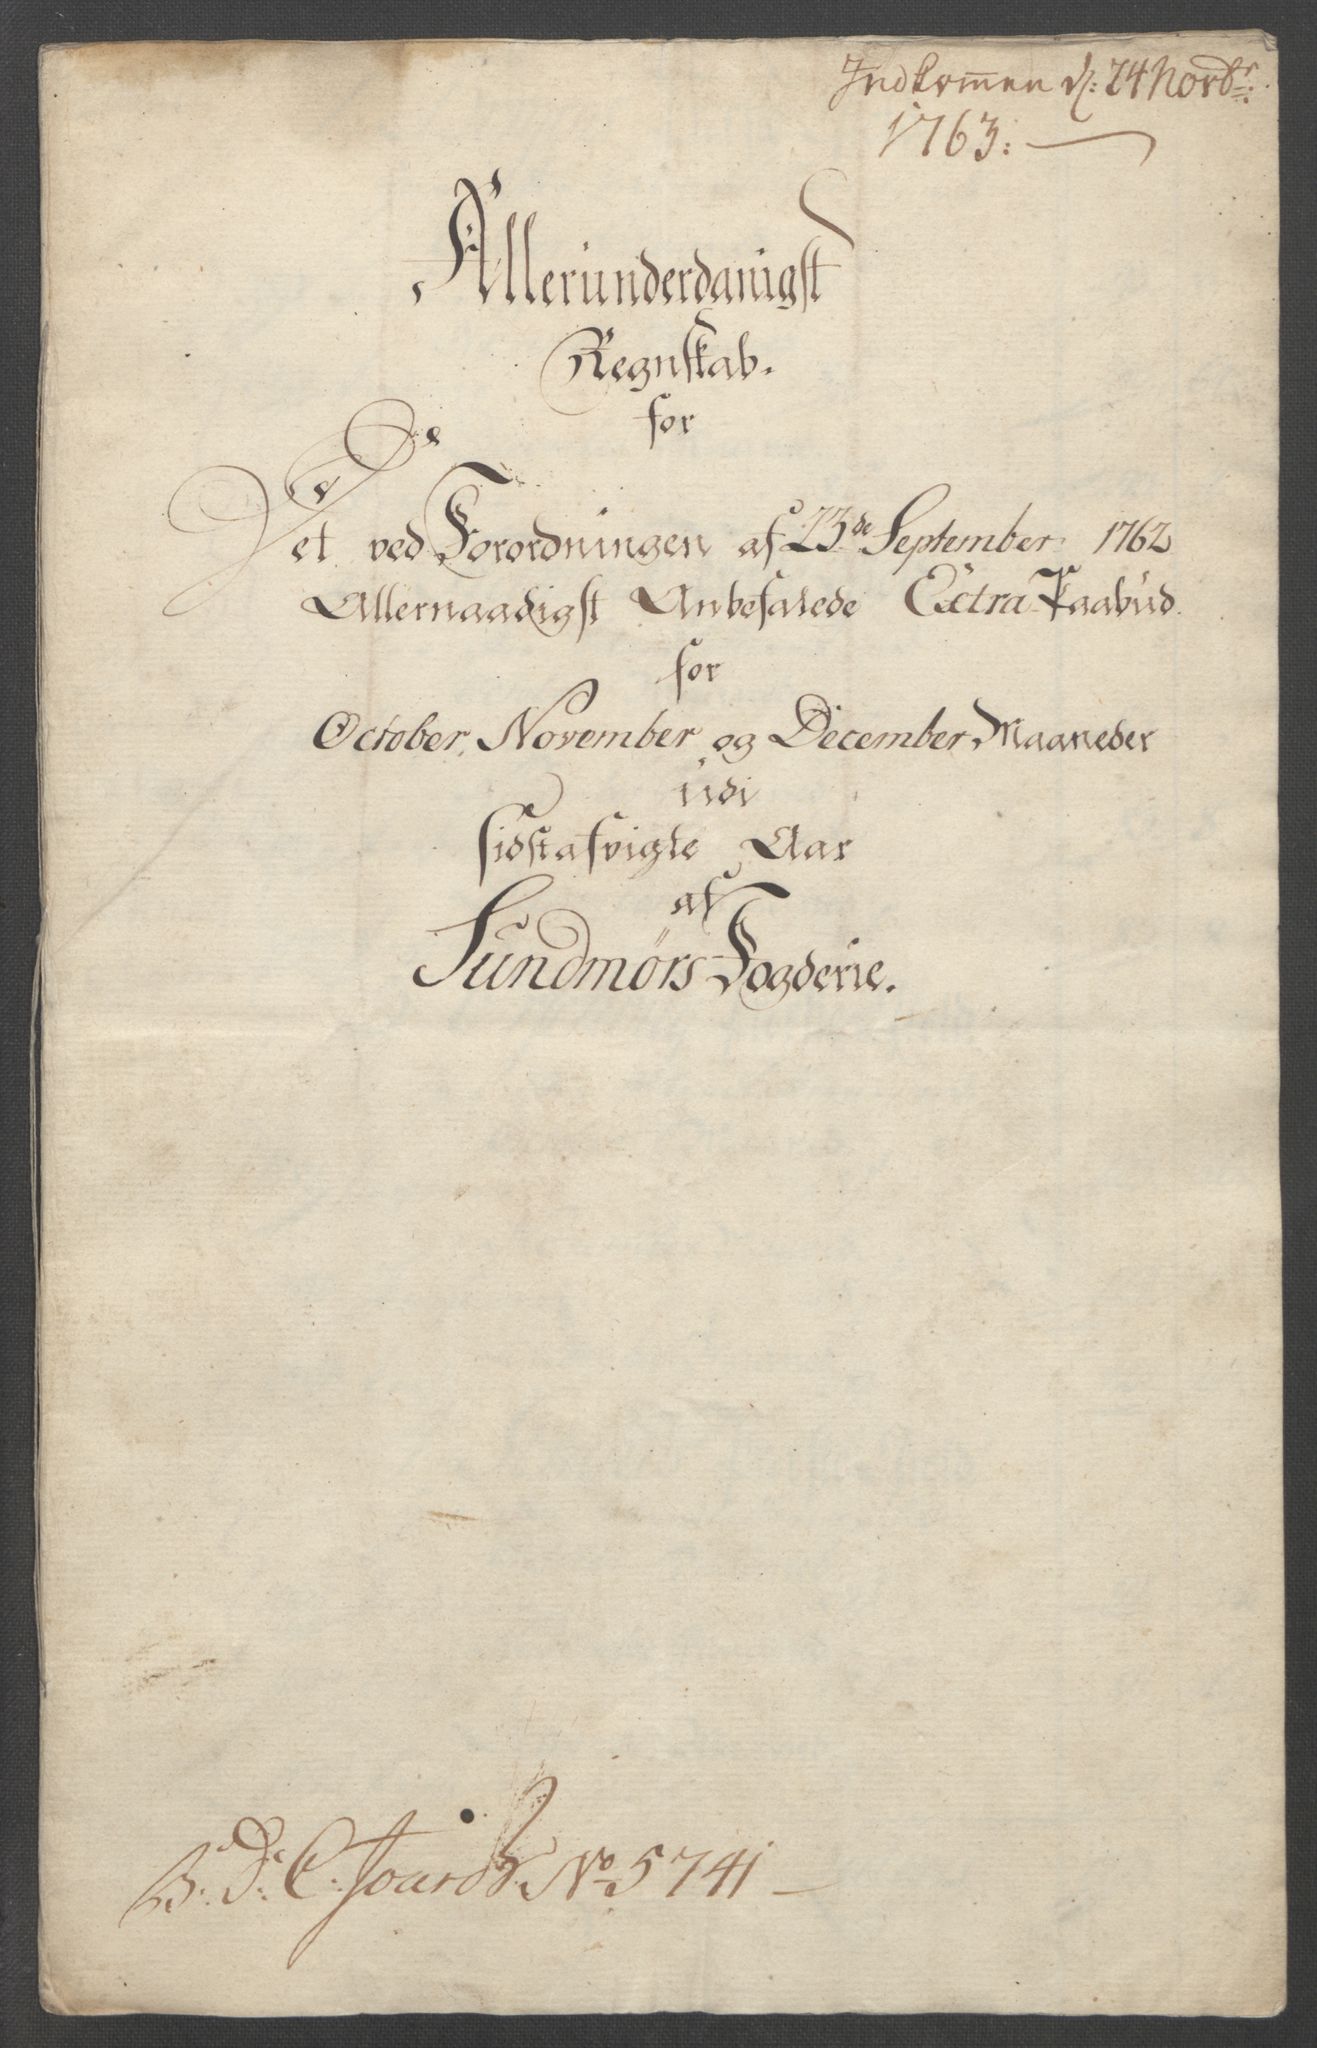 Indkom̅en d: 24 Novbr:
1763:
Allerunderdanigst
Regnskab.
for
Det ved Forordningen af 23de September 1762
Allernaadigst Anbefalede Extra Paabud
for
October, November og December Maaneder
udi
sidstafvigte Aar
af
Sundmørs Fogderie.
B: D: C: No 5741